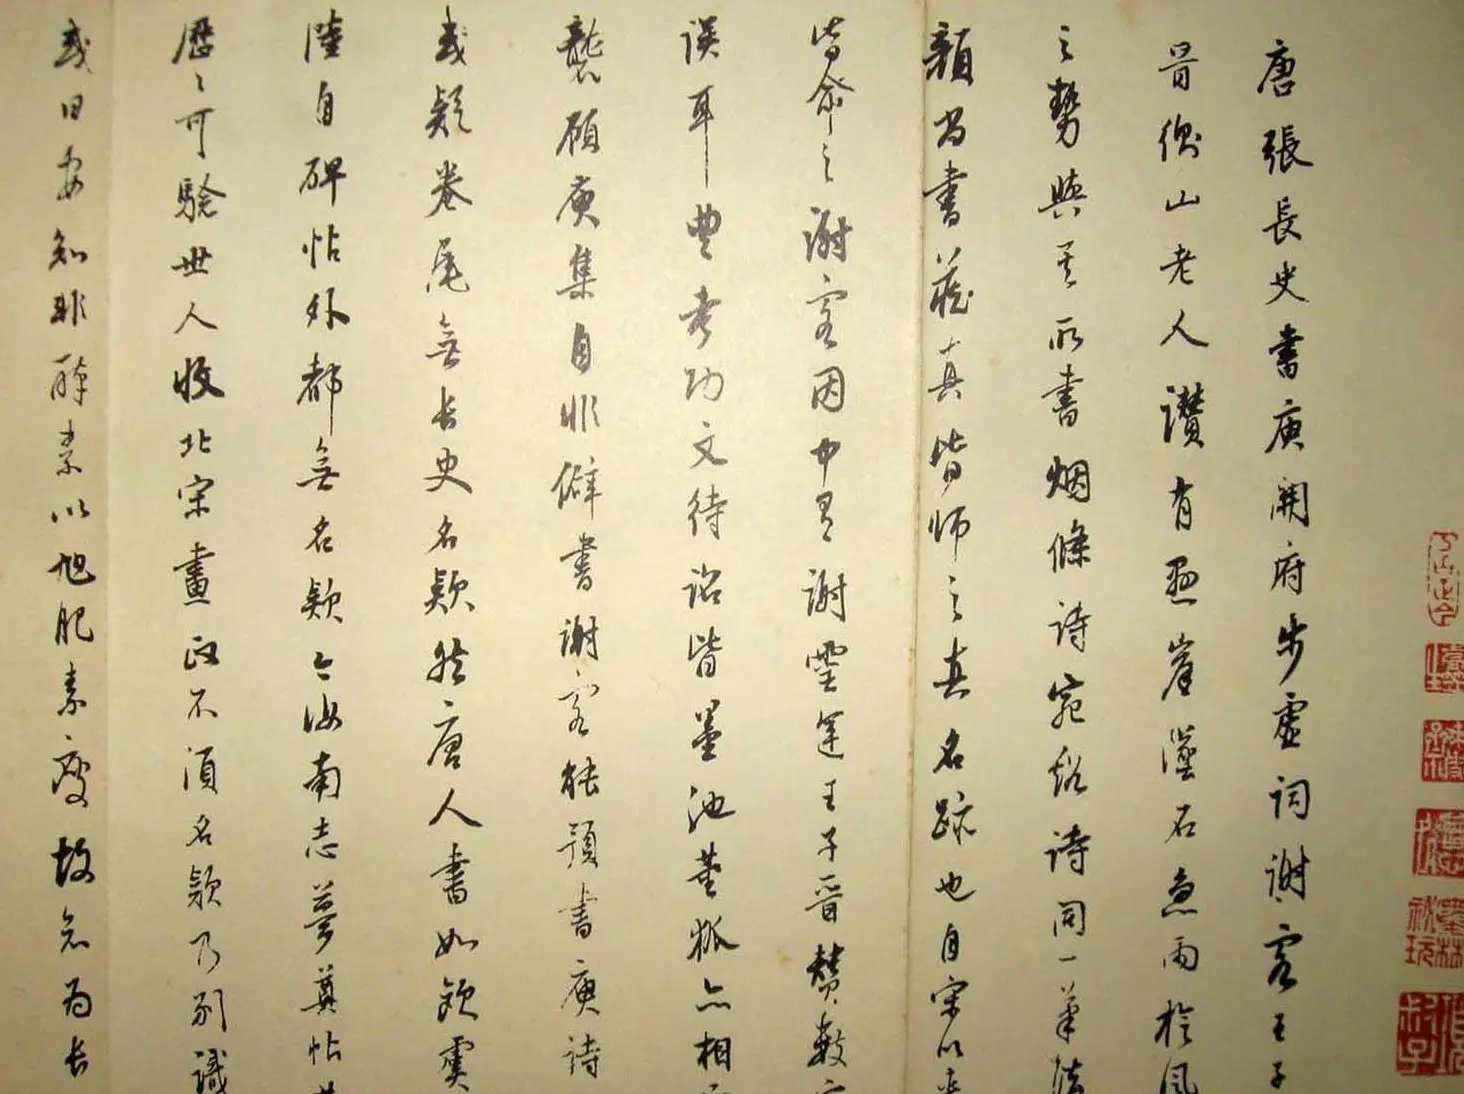 唐張長史書庾開府步虛詞謝客王子
晉衡山老人讚有懸崖墜石急雨旋風
之勢與其所書烟條詩宛谿詩同一筆法
顏尚書藏真皆師之真名跡也自宋以來
皆命之謝客因中有謝靈運王子晉贊數
誤耳豐考功文待詔皆墨池董狐亦相
襲顧庾集自非僻書謝客能預書庾詩
或疑卷尾無長史名款然唐人書如歐虞
陸自碑帖外都無名款今汝南志夢奠帖
歷歷可驗世人收北宋畫政不須名款乃別識
或曰安知非醉素以旭肥素瘦故為長